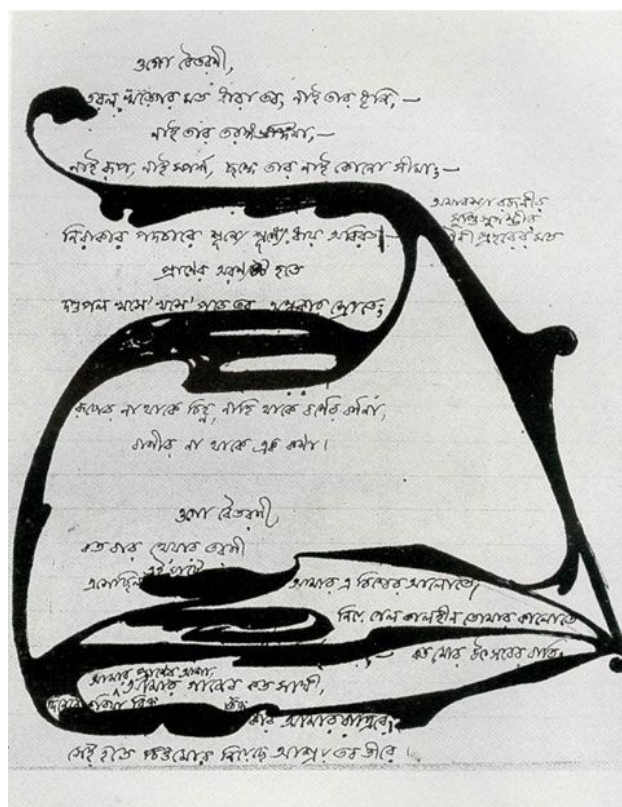 ওগো বৈতরণী,
তরল খড়্গের মত ধারা তব, নাই তার ধ্বনি, —
নাই তার তরঙ্গভঙ্গিমা, —
নাই রূপ, নাই স্পর্শ, ছন্দে তার নাই কোনো সীমা; —
অমাবস্যা রজনীর
সুপ্তি সুগম্ভীর
মৌনী প্রহরের মত
নিরাকার পদচারে শূন্যে শূন্যে ধায় অবিরত —
প্রাণের অরণ্যতট হতে
দণ্ডপল খসে' খসে' পড়ে তব অন্ধকার স্রোতে;
রূপের না থাকে চিহ্ন, নাহি থাকে বর্ণের বর্ণনা,
বাণীর না থাকে এক কণা।
ওগো বৈতরণী,
কতবার খেয়ার তরণী
এসেছিল এই ঘাটে আমার এ বিশ্বের আলোতে,
নিয়ে গেল কালহীন তোমার কালোতে
কত মোর উৎসবের বাতি,
আমার প্রাণের আশা, আমার গানের কত সাথী,
দিবসেরে রিক্ত করি তিক্ত করি আমার রাত্রিরে;
সেই হতে চিত্ত মোর নিয়েছে আশ্রয় তব তীরে।